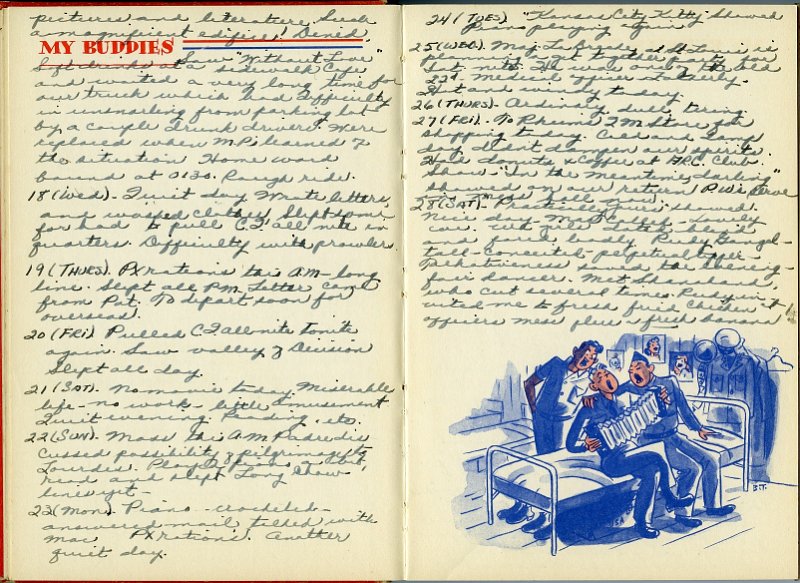 pictures and literature. Such
a magnificent edifice! Dined.
MY BUDDIES
Saw "Without Love"
Soft drinks at a sidewalk cafe
and waited a very long time for
our truck which had difficulty
in unsnarling from parking lot
by a couple drunk drivers. Were
replaced when M.P.s learned of
the situation. Home ward
bound at 0130. Rough ride.
18 (Wed). Quiet day. Wrote letters
and washed clothes. Slept some
for had to pull C.Q. all nite in
quarters. Difficulty with prowlers.
19 (Thurs). Px rations this AM - long
line. Slept all P.M. Letter came
from Pat. To depart soon for
overseas.
20 (Fri) Pulled C.Q. all nite tonite
again. Saw Valley of Decision
Slept all day.
21 (Sat). No movie today. Miserable
life - no work - little amusement
Quiet evening. Reading, etc.
22 (Sun). Mass this A.M. Padre dis
cussed possibility of pilgrimage to
Lourdes. Played piano a bit,
read and slept. Long show
lines yet -
23 (Mon). Piano - crocheted -
answered mail, talked with
Mac. Px rations. Another
quiet day.
24 (Tues). "Kansas City Kitty" showed
Piano playing again
25 (Wed). Maj. La Brasley at St. Louis is
planning get together party for
Sat. nite. He was one of the old
227. Medical officer
Hot and windy today.
26 (Thurs). Ordinary, dull, tiring.
27 (Fri). To Rheims QM Store for
shopping today. Cold and damp
day didn't dampen our spirits.
Had donuts & Coffee at A.R.C. Club.
Show "In the Meantime, Darling"
showed on our return. P.W.s serve
28 (Sat). Practically yours showed.
Nice day. Lovely
car.
and fared badly. Rudy
tall - conceited, perpetual
Talkativeness saved the evening -
fair dancer. Met Shanahand,
who cut several times. Ray in
vited me to fresh fried chicken at
officers mess plus a fresh banana
B.T.